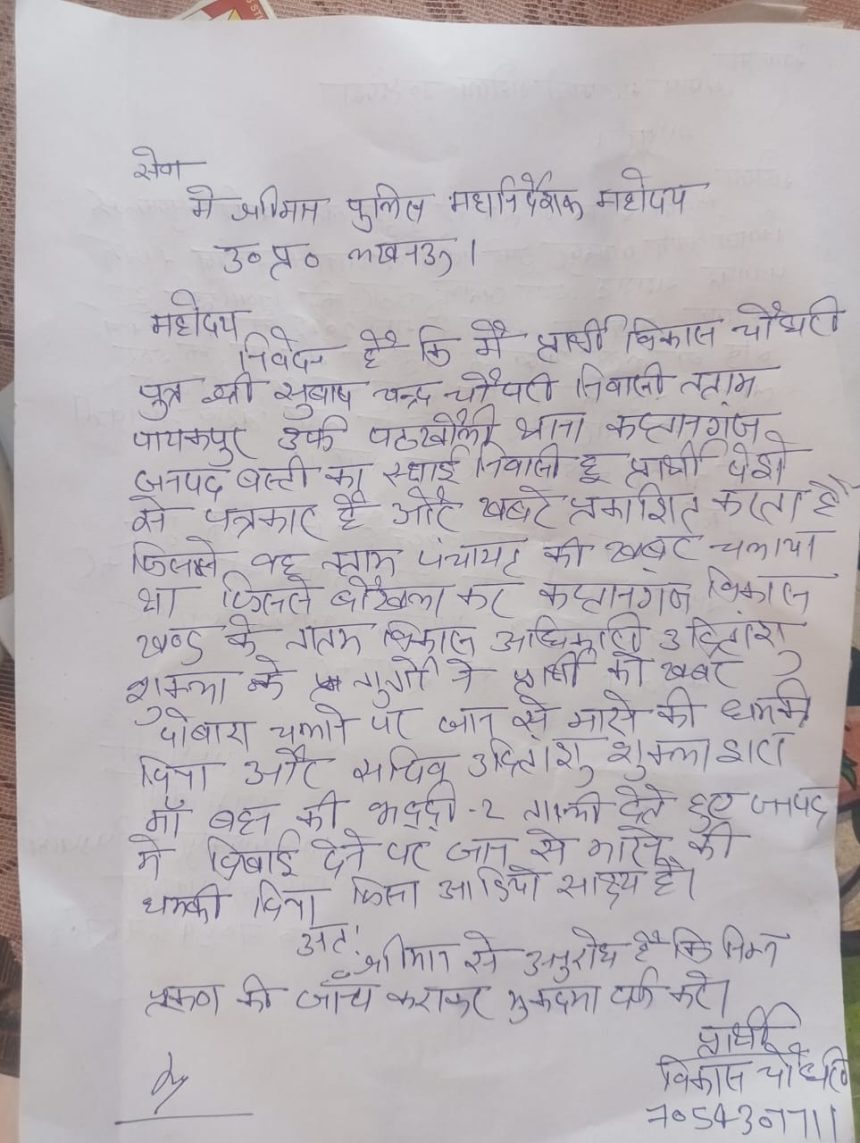 सेवा
मे श्रीमान पुलिस महानिर्देशक महोदय
उ० प्र० लखनऊ।
महोदय
निवेदन है कि मै प्रार्थी विकास चौधरी
पुत्र श्री सुबाष चन्द्र चौधरी निवासी ग्राम
पायकपुर उर्फ पठखौली थाना कप्तानगंज
जनपद बस्ती का स्थाई निवासी हू प्रार्थी पेशे
से पत्रकार है और खबरे प्रकाशित करता है
जिससे वह ग्राम पंचायत की खबर चलाया
था जिससे बौखला कर कप्तानगंज विकास
खण्ड के ग्राम विकास अधिकारी उदितांशु
शुक्ला के गुर्गो ने प्रार्थी को खबर
दोबारा चलाने पर जान से मारने की धमकी
दिया और सचिव उदितांशु शुक्ला द्वारा
माँ बहन की भद्दी-2 गाली देते हुए जनपद
मे दिखाई देने पर जान से मारने की
धमकी दिया जिसा आडियो साक्ष्य है।
अतः
श्रीमान से अनुरोध है कि निम्न
प्रकरण की जाँच कराकर मुकदमा दर्ज करे।
प्रार्थी
विकास चौधरी
7054307711